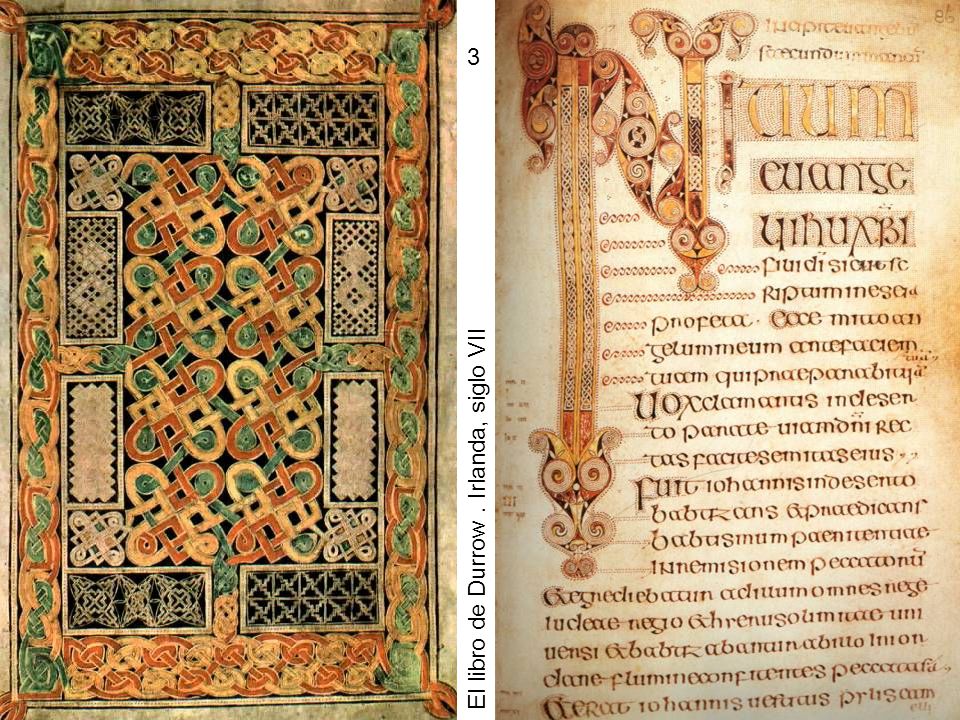 3
El libro de Durrow . Irlanda, siglo VII
86
INITIUM
euange
lii ihu xpi
filii di sicut sc
riptum in esaia
profeta . Ecce mitto an
gelum meum ante faciem
tuam qui praeparabit uiā
uox clamantis in deser
to parate uiam dni rec
tas facite semitas eius
fuit iohannis in deserto
babtizans & praedicans
babtismum paenitentiae
in remisionem peccatorū
& egrediebatur ad illum omnes rege
iudeae regio & hierusolimitae uni
uersi & babtizabantur ab illo in ior
dane flumine confitentes peccata sū
& erat iohannis uestitus pylis cam